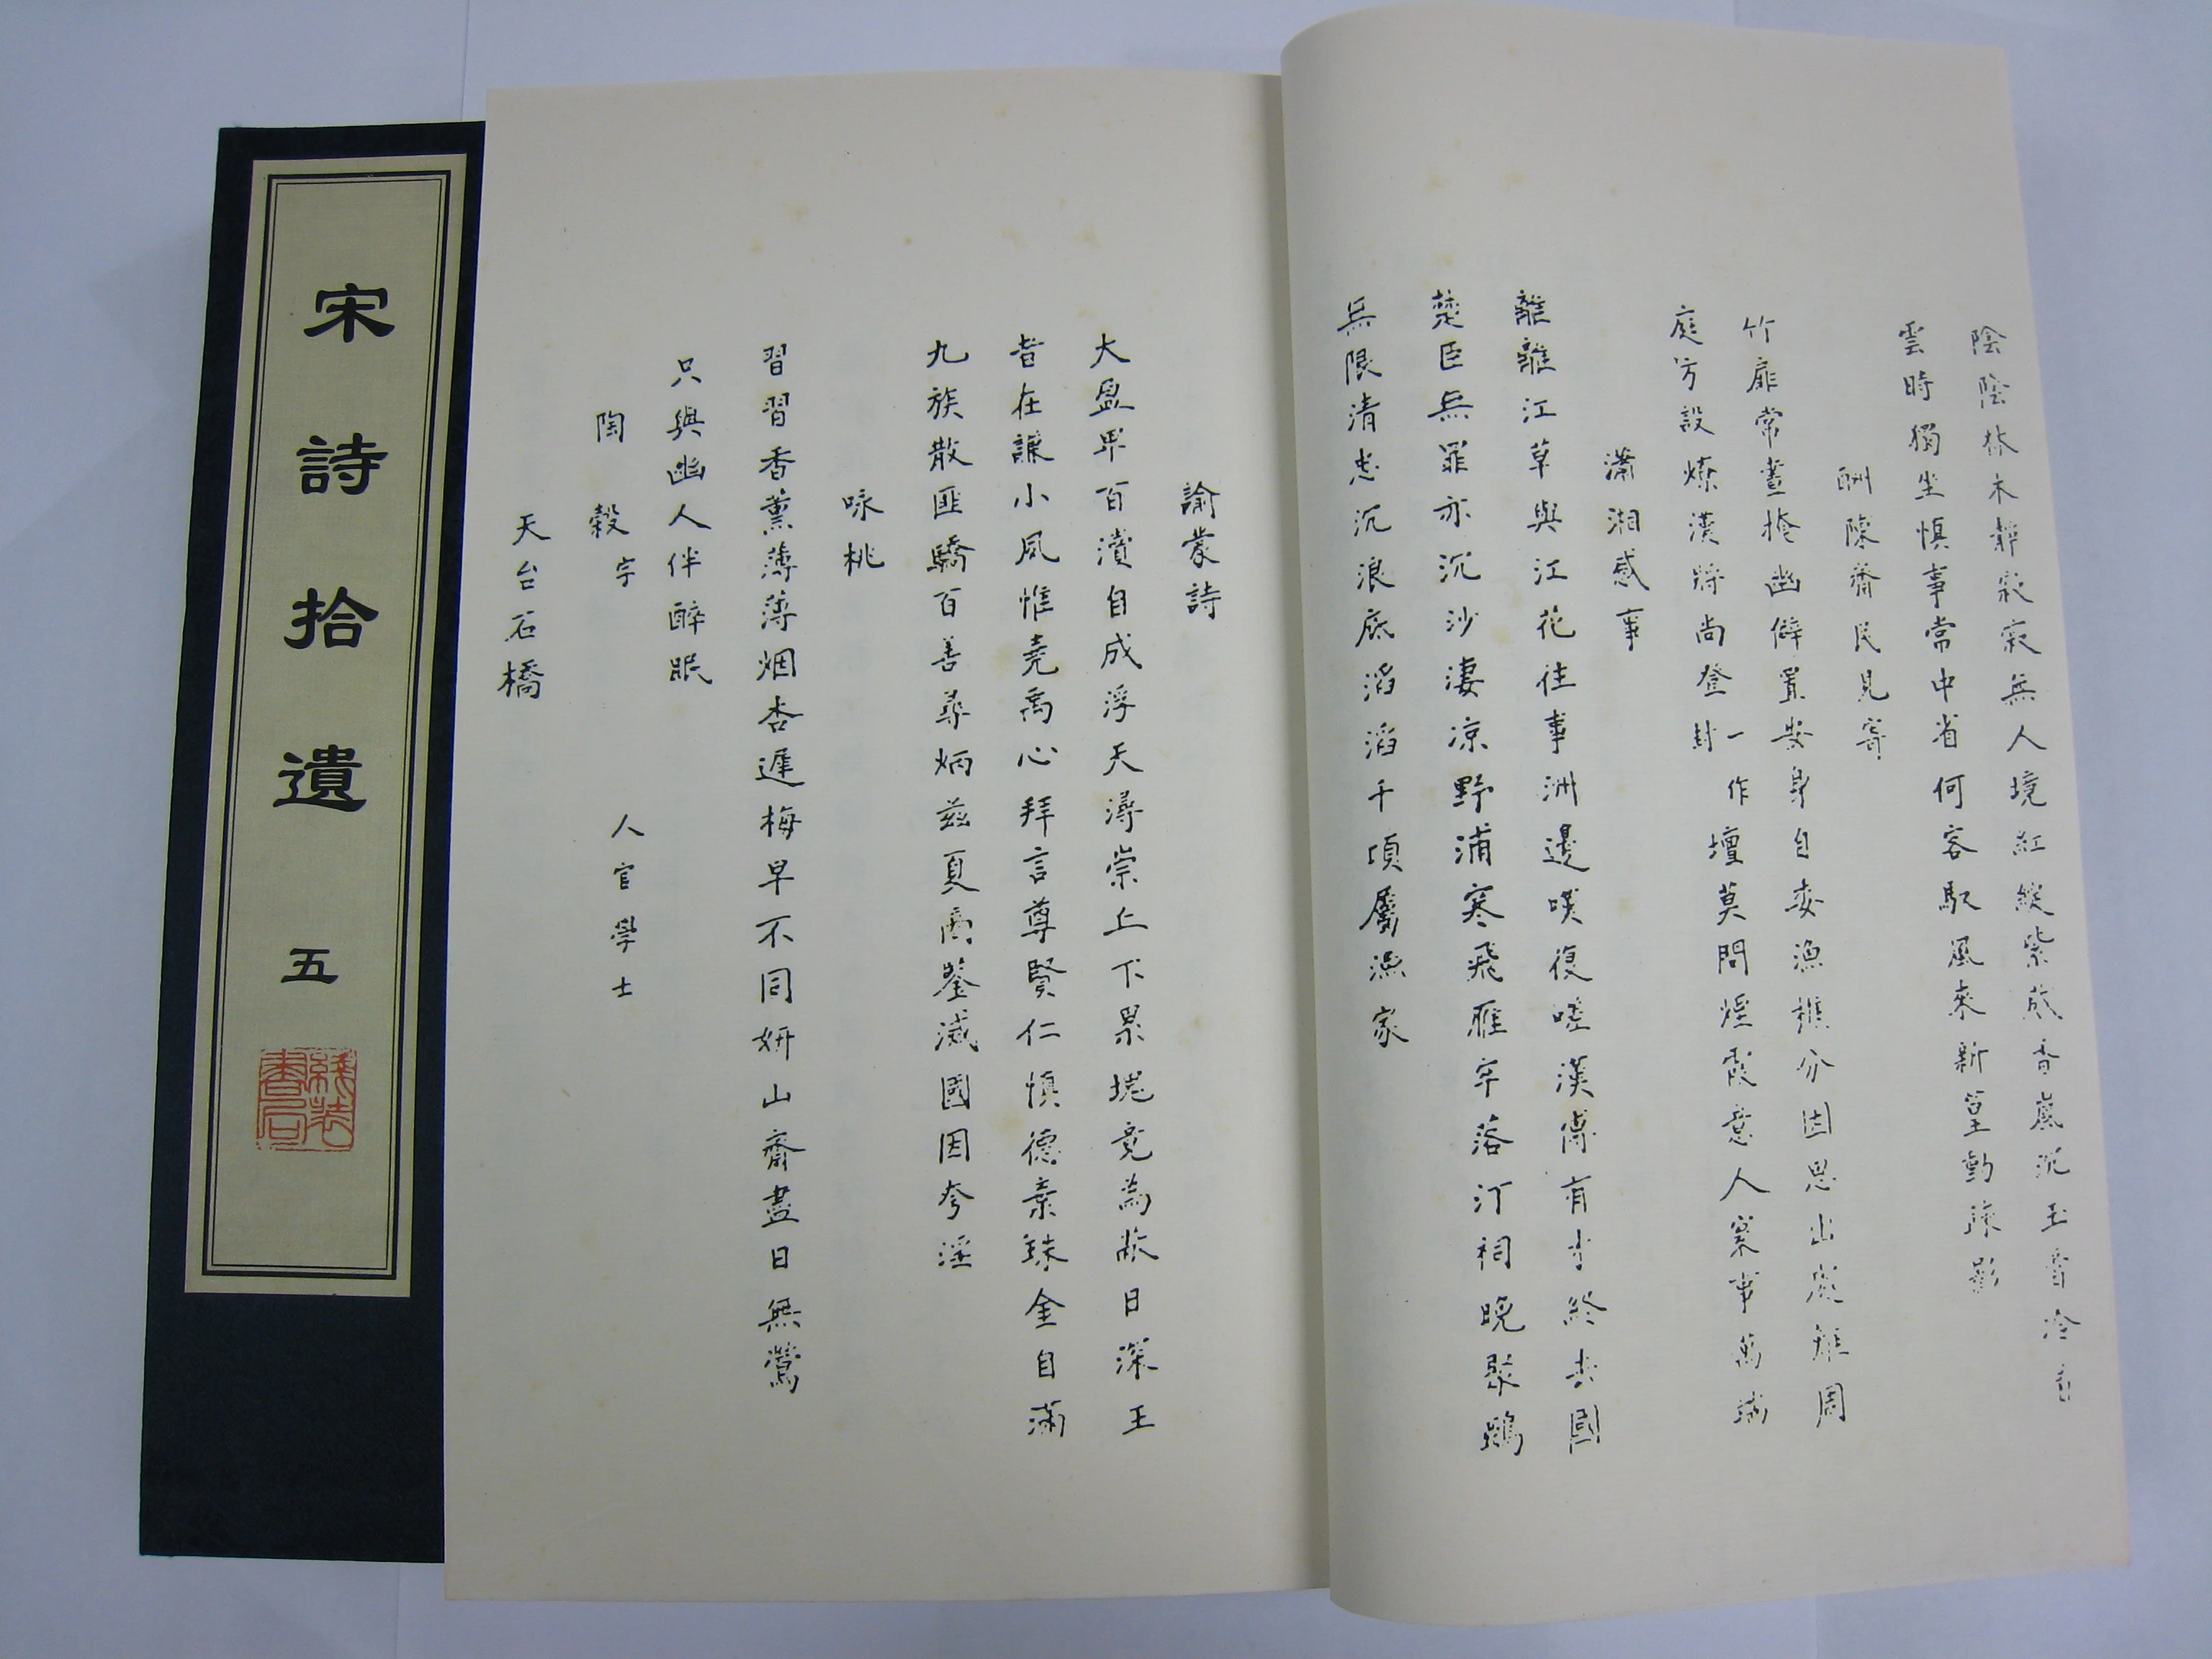 宋詩拾遺 五
綫裝書局
陰陰林木靜寂寂無人境紅綻紫苞香嵐沉玉膏冷
雲時獨坐慎事常中省何容馭風來新篁動疎影
酬陳齊民見寄
竹扉常晝掩幽僻置安身自委漁樵分因思出處難周
庭方設燎漢將尚登封一作壇莫問煙霞意人寰事萬端
瀟湘感事
離離江草與江花往事洲邊嘆復嗟漢傅有才終去國
楚臣無罪亦沉沙淒凉野浦寒飛雁牢落汀祠晚聚鴉
無限清忠沉浪底滔滔千頃屬漁家
諭蒙詩
大盈畢百瀆自成浮天潯崇丘下累塊竟為蔽日深王
者在謙小夙惟堯禹心拜言尊賢仁慎德棄珠金自滿
九族散匪驕百善尋炳兹夏商鑒滅國因夸淫
咏桃
習習香薰薄薄烟杏遲梅早不同妍山齋盡日無鶯
只與幽人伴醉眠
陶穀字 人官學士
天台石橋